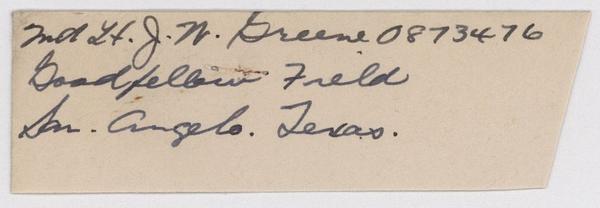 2nd Lt. J. W. Greene 0873476
Goodfellow Field
San. Angelo. Texas.